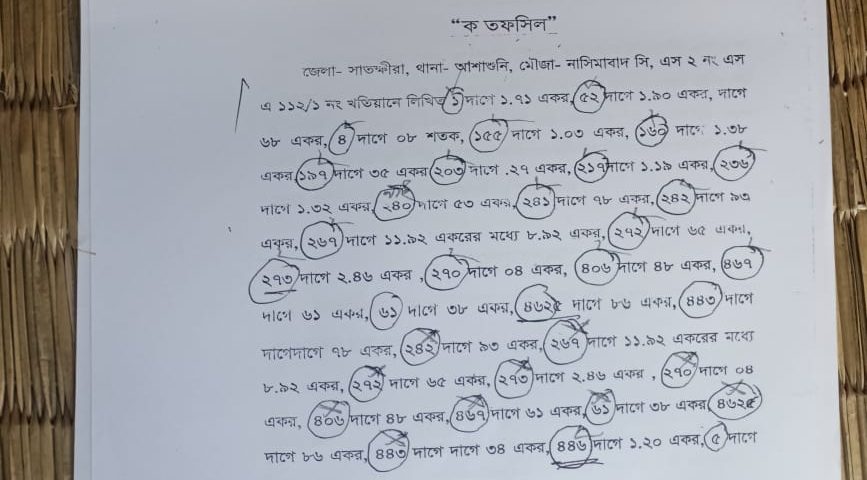 “ক তফসিল”
জেলা- সাতক্ষীরা, থানা- আশাশুনি, মৌজা- নাসিমাবাদ সি, এস ২ নং এস
এ ১১২/১ নং খতিয়ানে লিখিত ১ দাগে ১.৭১ একর, ৫২ দাগে ১.৯০ একর, দাগে
৬৮ একর, ৪ দাগে ০৮ শতক, ১৫৫ দাগে ১.০৩ একর, ১৬০ দাগে ১.৩৮
একর ১৯৭ দাগে ৩৫ একর ২০৩ দাগে .২৭ একর, ২১৭ দাগে ১.১৯ একর, ২৩৬
দাগে ১.৩২ একর, ২৪০ দাগে ৫৩ একর, ২৪১ দাগে ৭৮ একর, ২৪২ দাগে ৯৩
একর, ২৬৭ দাগে ১১.৯২ একরের মধ্যে ৮.৯২ একর, ২৭২ দাগে ৬৫ একর,
২৭৩ দাগে ২.৪৬ একর , ২৭০ দাগে ০৪ একর, ৪০৬ দাগে ৪৮ একর, ৪৬৭
দাগে ৬১ একর, ৬১ দাগে ৩৮ একর, ৪৬২৫ দাগে ৮৬ একর, ৪৪৩ দাগে
দাগেদাগে ৭৮ একর, ২৪২ দাগে ৯৩ একর, ২৬৭ দাগে ১১.৯২ একরের মধ্যে
৮.৯২ একর, ২৭২ দাগে ৬৫ একর, ২৭৩ দাগে ২.৪৬ একর , ২৭০ দাগে ০৪
একর, ৪০৬ দাগে ৪৮ একর, ৪৬৭ দাগে ৬১ একর, ৬১ দাগে ৩৮ একর ৪৬২৫
দাগে ৮৬ একর, ৪৪৩ দাগে দাগে ৩৪ একর, ৪৪৬ দাগে ১.২০ একর, ৫ দাগে